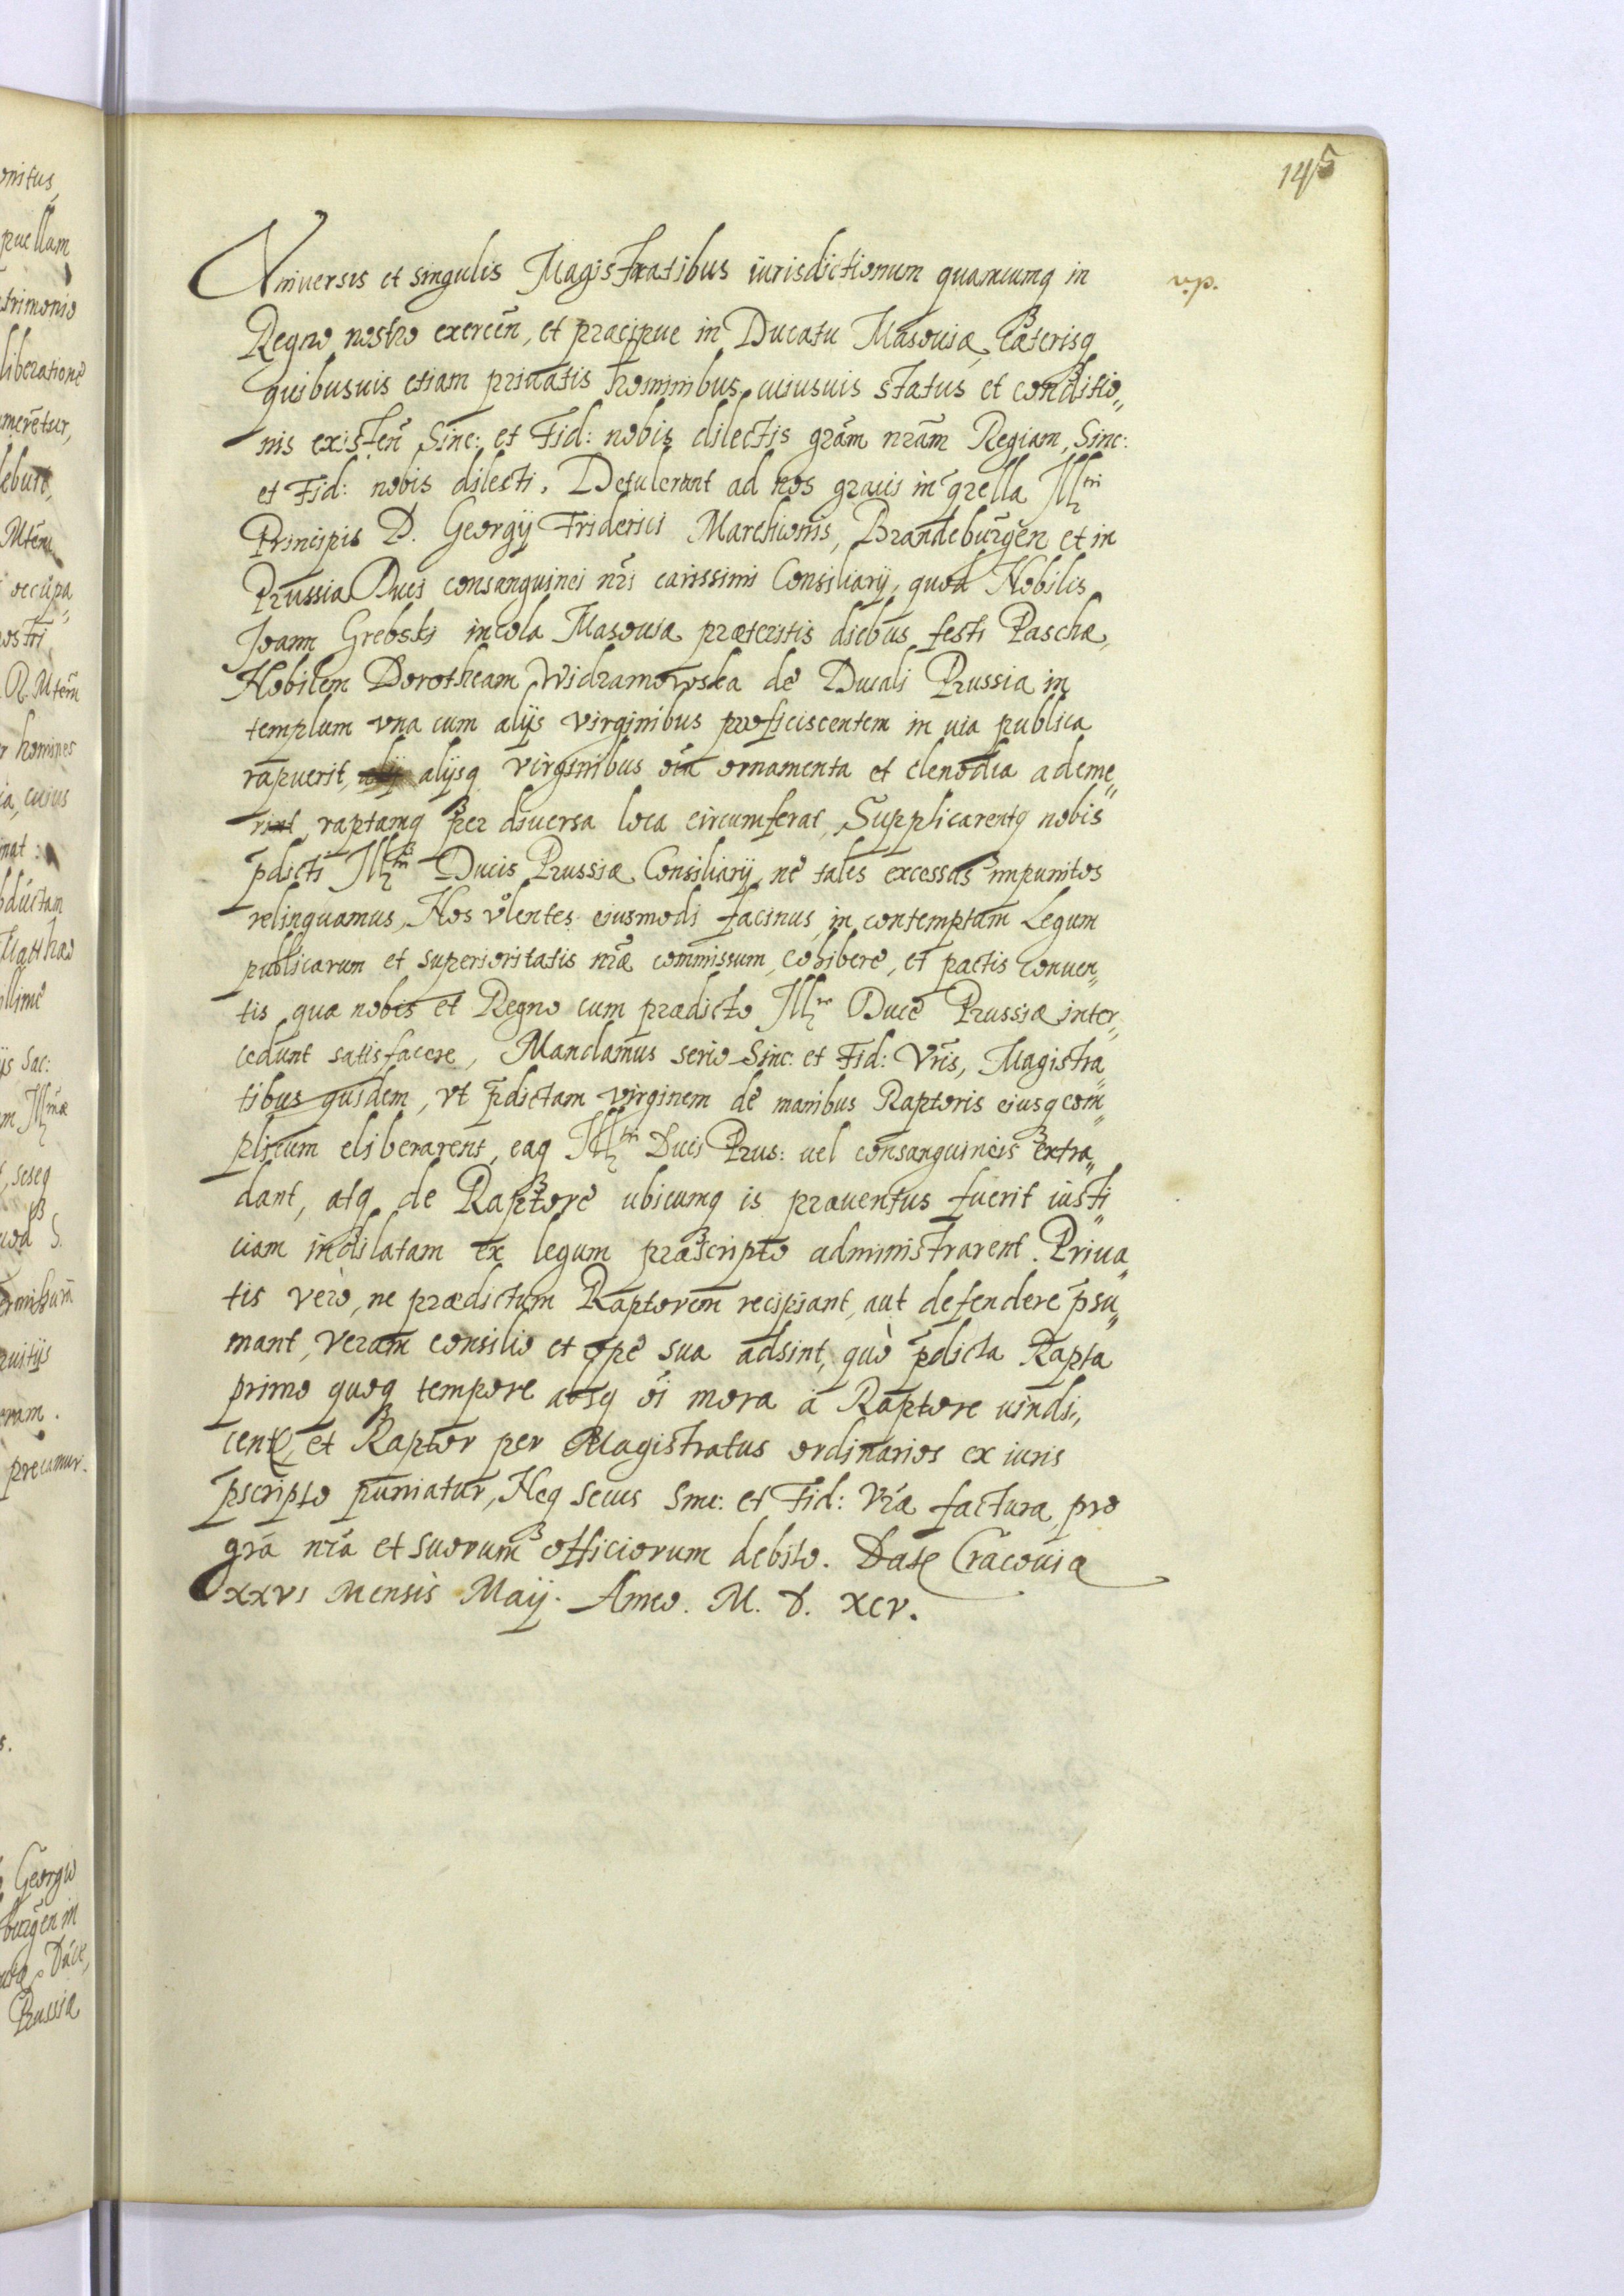 145
Vniuersis et singulis Magistratibus iurisdictionum quamcumq in
Regno nostro exercen̄, et præcipue in Ducatu Masouiæ, Cæterisq
quibusuis etiam priuatis hominibus cuiusuis status et conditio„
nis existen̄ Sinc: et Fid: nobis dilectis grām nrām Regiam, Sinc:
et Fid: nobis dilecti. Detulerunt ad nos graui in qrella Illtri
Principis D. Georgij Friderici Marchionis, Brandeburgen̄ et in
Prussia Ducis consanguinei nrī carissimi Consiliarij, quod Nobilis
Joann Grebski incola Masouiæ præteritis diebus festi Paschæ,
Nobilem Dorotheam Widzamowska de Ducali Prussia in
templum vna cum alijs virginibus proficiscentem in uia publica
rapuerit, alijsq virginibus oīa ornamenta et clenodia ademe„
rint, raptamq per diuersa loca circumferat, Supplicarentq nobis
p̄dicti Illtri Ducis Prussiæ Consiliarij, ne tales excessus impunitos
relinquamus, Nos volentes eiusmodi facinus, in contemptum Legum
publicarum et superioritatis nrǣ commissum, cohibere, et pactis conuen„
tis quæ nobis et Regno cum prædicto Illre Duce Prussiæ inter„
cedunt satisfacere, Mandamus serio Sinc: et Fid: Vrīs, Magistra„
tibus quidem, vt p̄dictam virginem de manibus Raptoris eiusq com„
plicum eliberarent, eaq Illtri Duci Prus: uel consanguineis extra„
dant, atq de Raptore ubicumq is præuentus fuerit iusti„
ciam indilatam ex legum præscripto administrarent. Priua„
tis verò, ne prædictum Raptorem recipiant, aut defendere p̄su„
mant, verum consilio et ope sua adsint, quò p̄dicta Rapta
primo quoq tempore absq oī mora à Raptore uindi„
cent, et Raptor per Magistratus ordinarios ex iuris
p̄scripto puniatur, Neq secus Sinc: et Fid: Vrǣ factura, pro
grā nrā et suorum officiorum debito. Dat Cracouiæ
xxvi Mensis Maij. Anno. M. D. xcv.